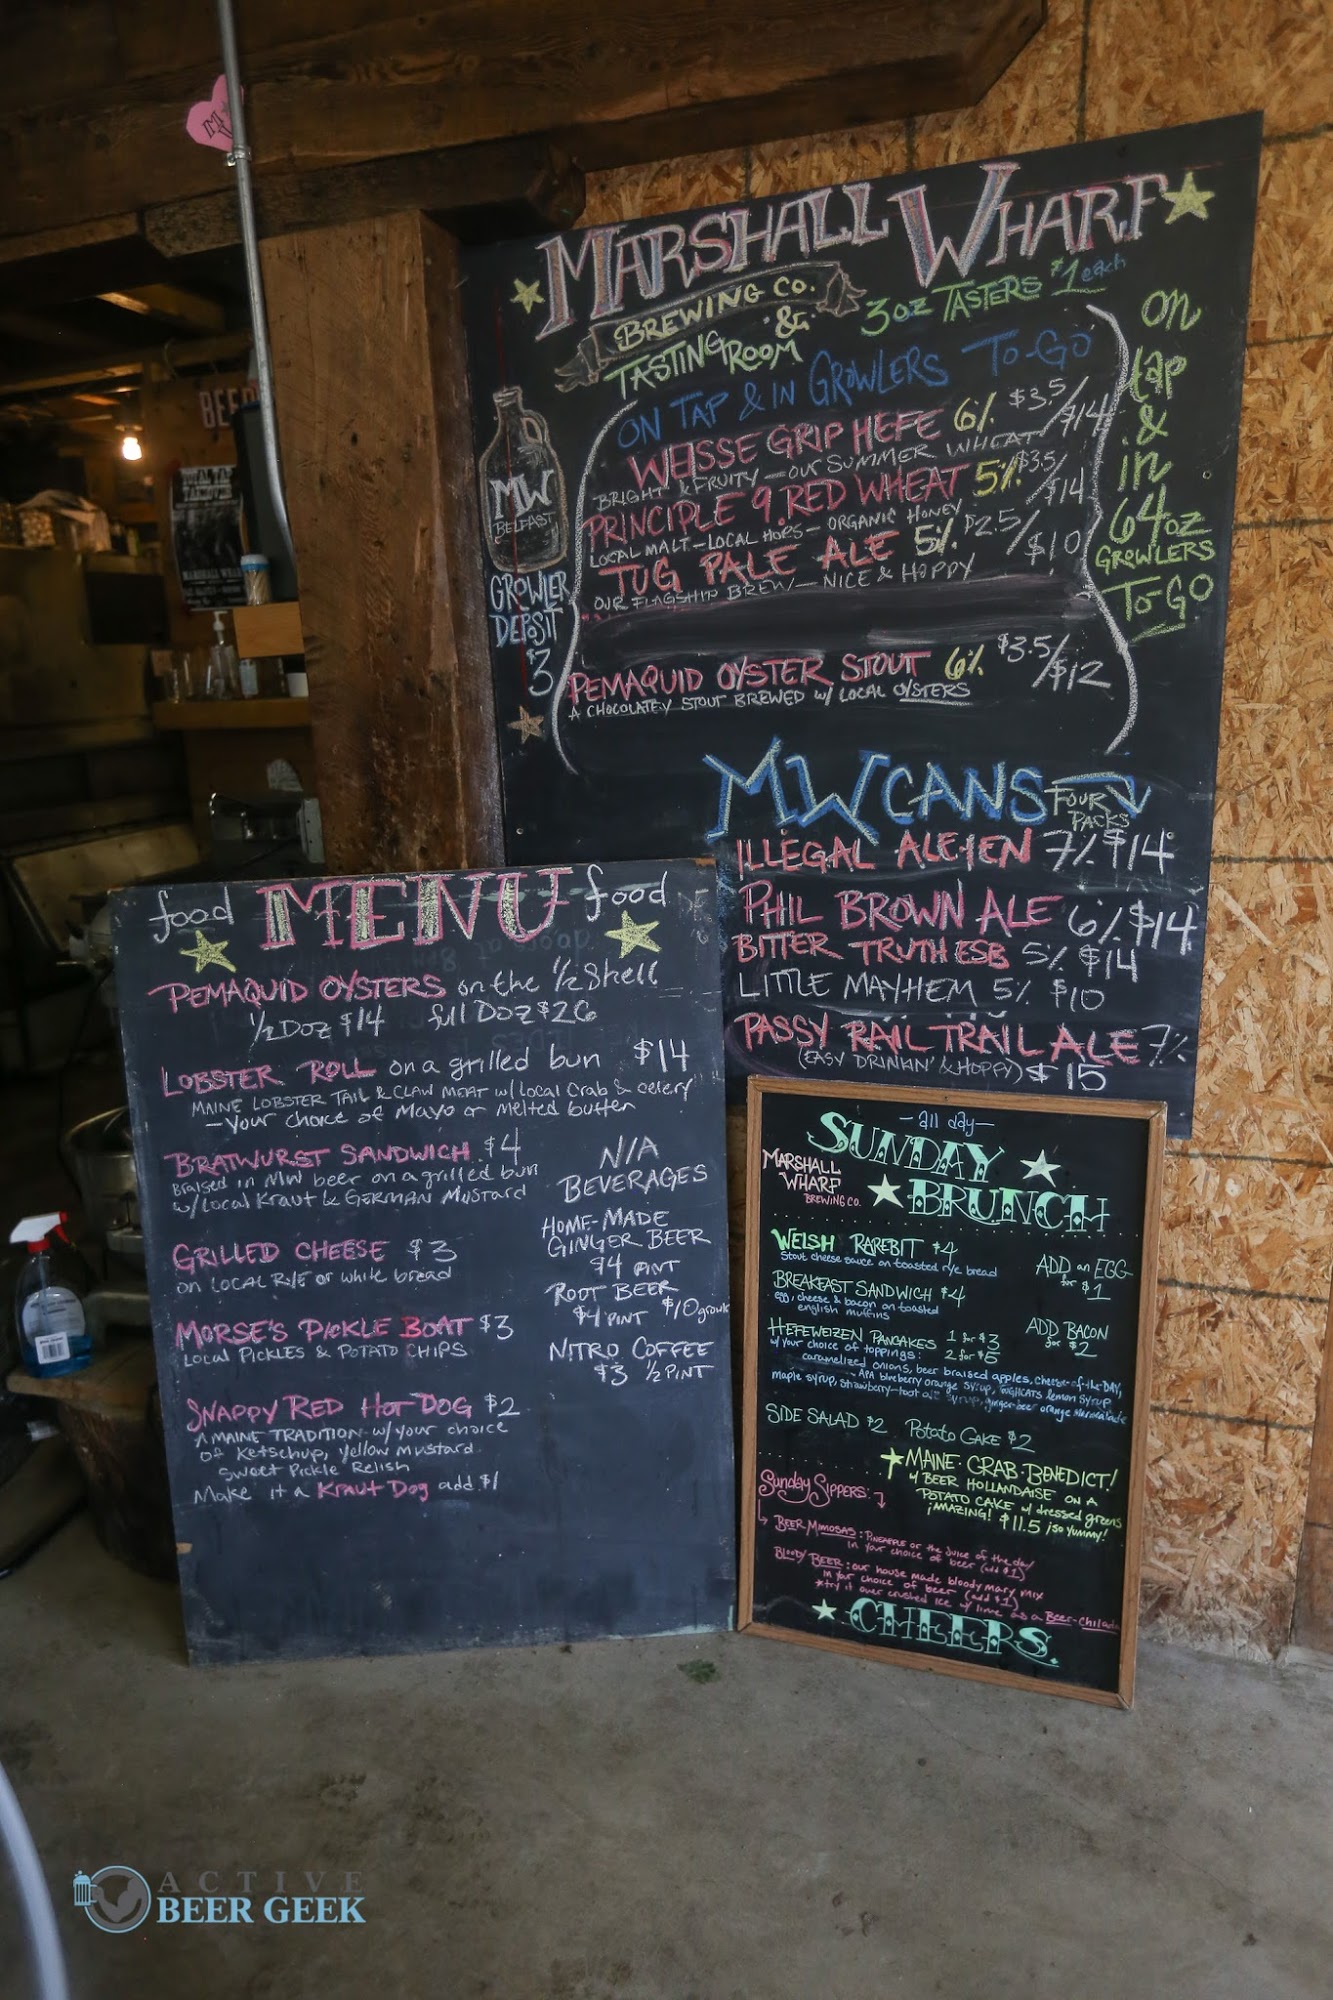 MARSHALL WHARF
BREWING CO.
&
TASTING ROOM
3oz TASTERS $1 each
ON TAP & IN GROWLERS TO-GO
WEISSE GRIP HEFE 6% $3.5/$14
BRIGHT & FRUITY - OUR SUMMER WHEAT
PRINCIPLE 9. RED WHEAT 5% $3.5/$14
LOCAL MALT - LOCAL HOPS - ORGANIC HONEY
TUG PALE ALE 5% $2.5/$10
OUR FLAGSHIP BREW - NICE & HOPPY
PEMAQUID OYSTER STOUT 6% $3.5/$12
A CHOCOLATEY STOUT BREWED w/ LOCAL OYSTERS
MW
BELFAST
GROWLER
DEPOSIT
$3
on
tap
&
in
64oz
GROWLERS
TO-GO
MW CANS FOUR
PACKS
ILLEGAL ALE-IEN 7% $14
PHIL BROWN ALE 6% $14
BITTER TRUTH ESB 5% $14
LITTLE MAYHEM 5% $10
PASSY RAIL TRAIL ALE 7%
(EASY DRINKIN' & HOPPY) $15
food MENU food
PEMAQUID OYSTERS on the 1/2 Shell
1/2 DOZ $14 full DOZ $26
LOBSTER ROLL on a grilled bun $14
MAINE LOBSTER TAIL & CLAW MEAT w/ Local Crab & celery
- your choice of Mayo or Melted butter
BRATWURST SANDWICH $4
Braised in MW beer on a grilled bun
w/ Local Kraut & GERMAN MUSTARD
GRILLED CHEESE $3
on LOCAL RYE or white bread
MORSE'S PICKLE BOAT $3
LOCAL PICKLES & POTATO CHIPS
SNAPPY RED HOT DOG $2
A MAINE TRADITION w/ your choice
of Ketschup, yellow mustard
Sweet Pickle Relish
Make it a Kraut Dog add $1
N/A
BEVERAGES
HOME-MADE
GINGER BEER
$4 PINT
ROOT BEER
$4 PINT $10 growlr
NITRO COFFEE
$3 1/2 PINT
- all day -
SUNDAY
BRUNCH
MARSHALL
WHARF
BREWING CO.
WELSH RAREBIT $4
Stout cheese sauce on toasted rye bread
BREAKFAST SANDWICH $4
egg, cheese & bacon on toasted
english muffins
ADD an EGG
for $1
HEFEWEIZEN PANCAKES 1 for $3
w/ your choice of toppings: 2 for $5
caramelized onions, beer braised apples, cheese-of-the-DAY,
APA blueberry orange syrup, TOUGHCATS lemon syrup
maple syrup, strawberry-toot syrup, ginger-beer orange marmalade
ADD BACON
for $2
SIDE SALAD $2 Potato CAKE $2
MAINE-CRAB-BENEDICT!
w/ BEER HOLLANDAISE ON A
POTATO CAKE w/ dressed greens
¡MAZING! $11.5 ¡SO YUMMY!
Sunday Sippers:
BEER MIMOSAS: PINEAPPLE or the juice of the day
in your choice of beer (add $1)
BLOODY BEER: our house made bloody mary mix
in your choice of beer (add $1)
*try it over crushed ice w/ lime as a Beer-chilada
CHEERS.
BEER
ACTIVE
BEER GEEK